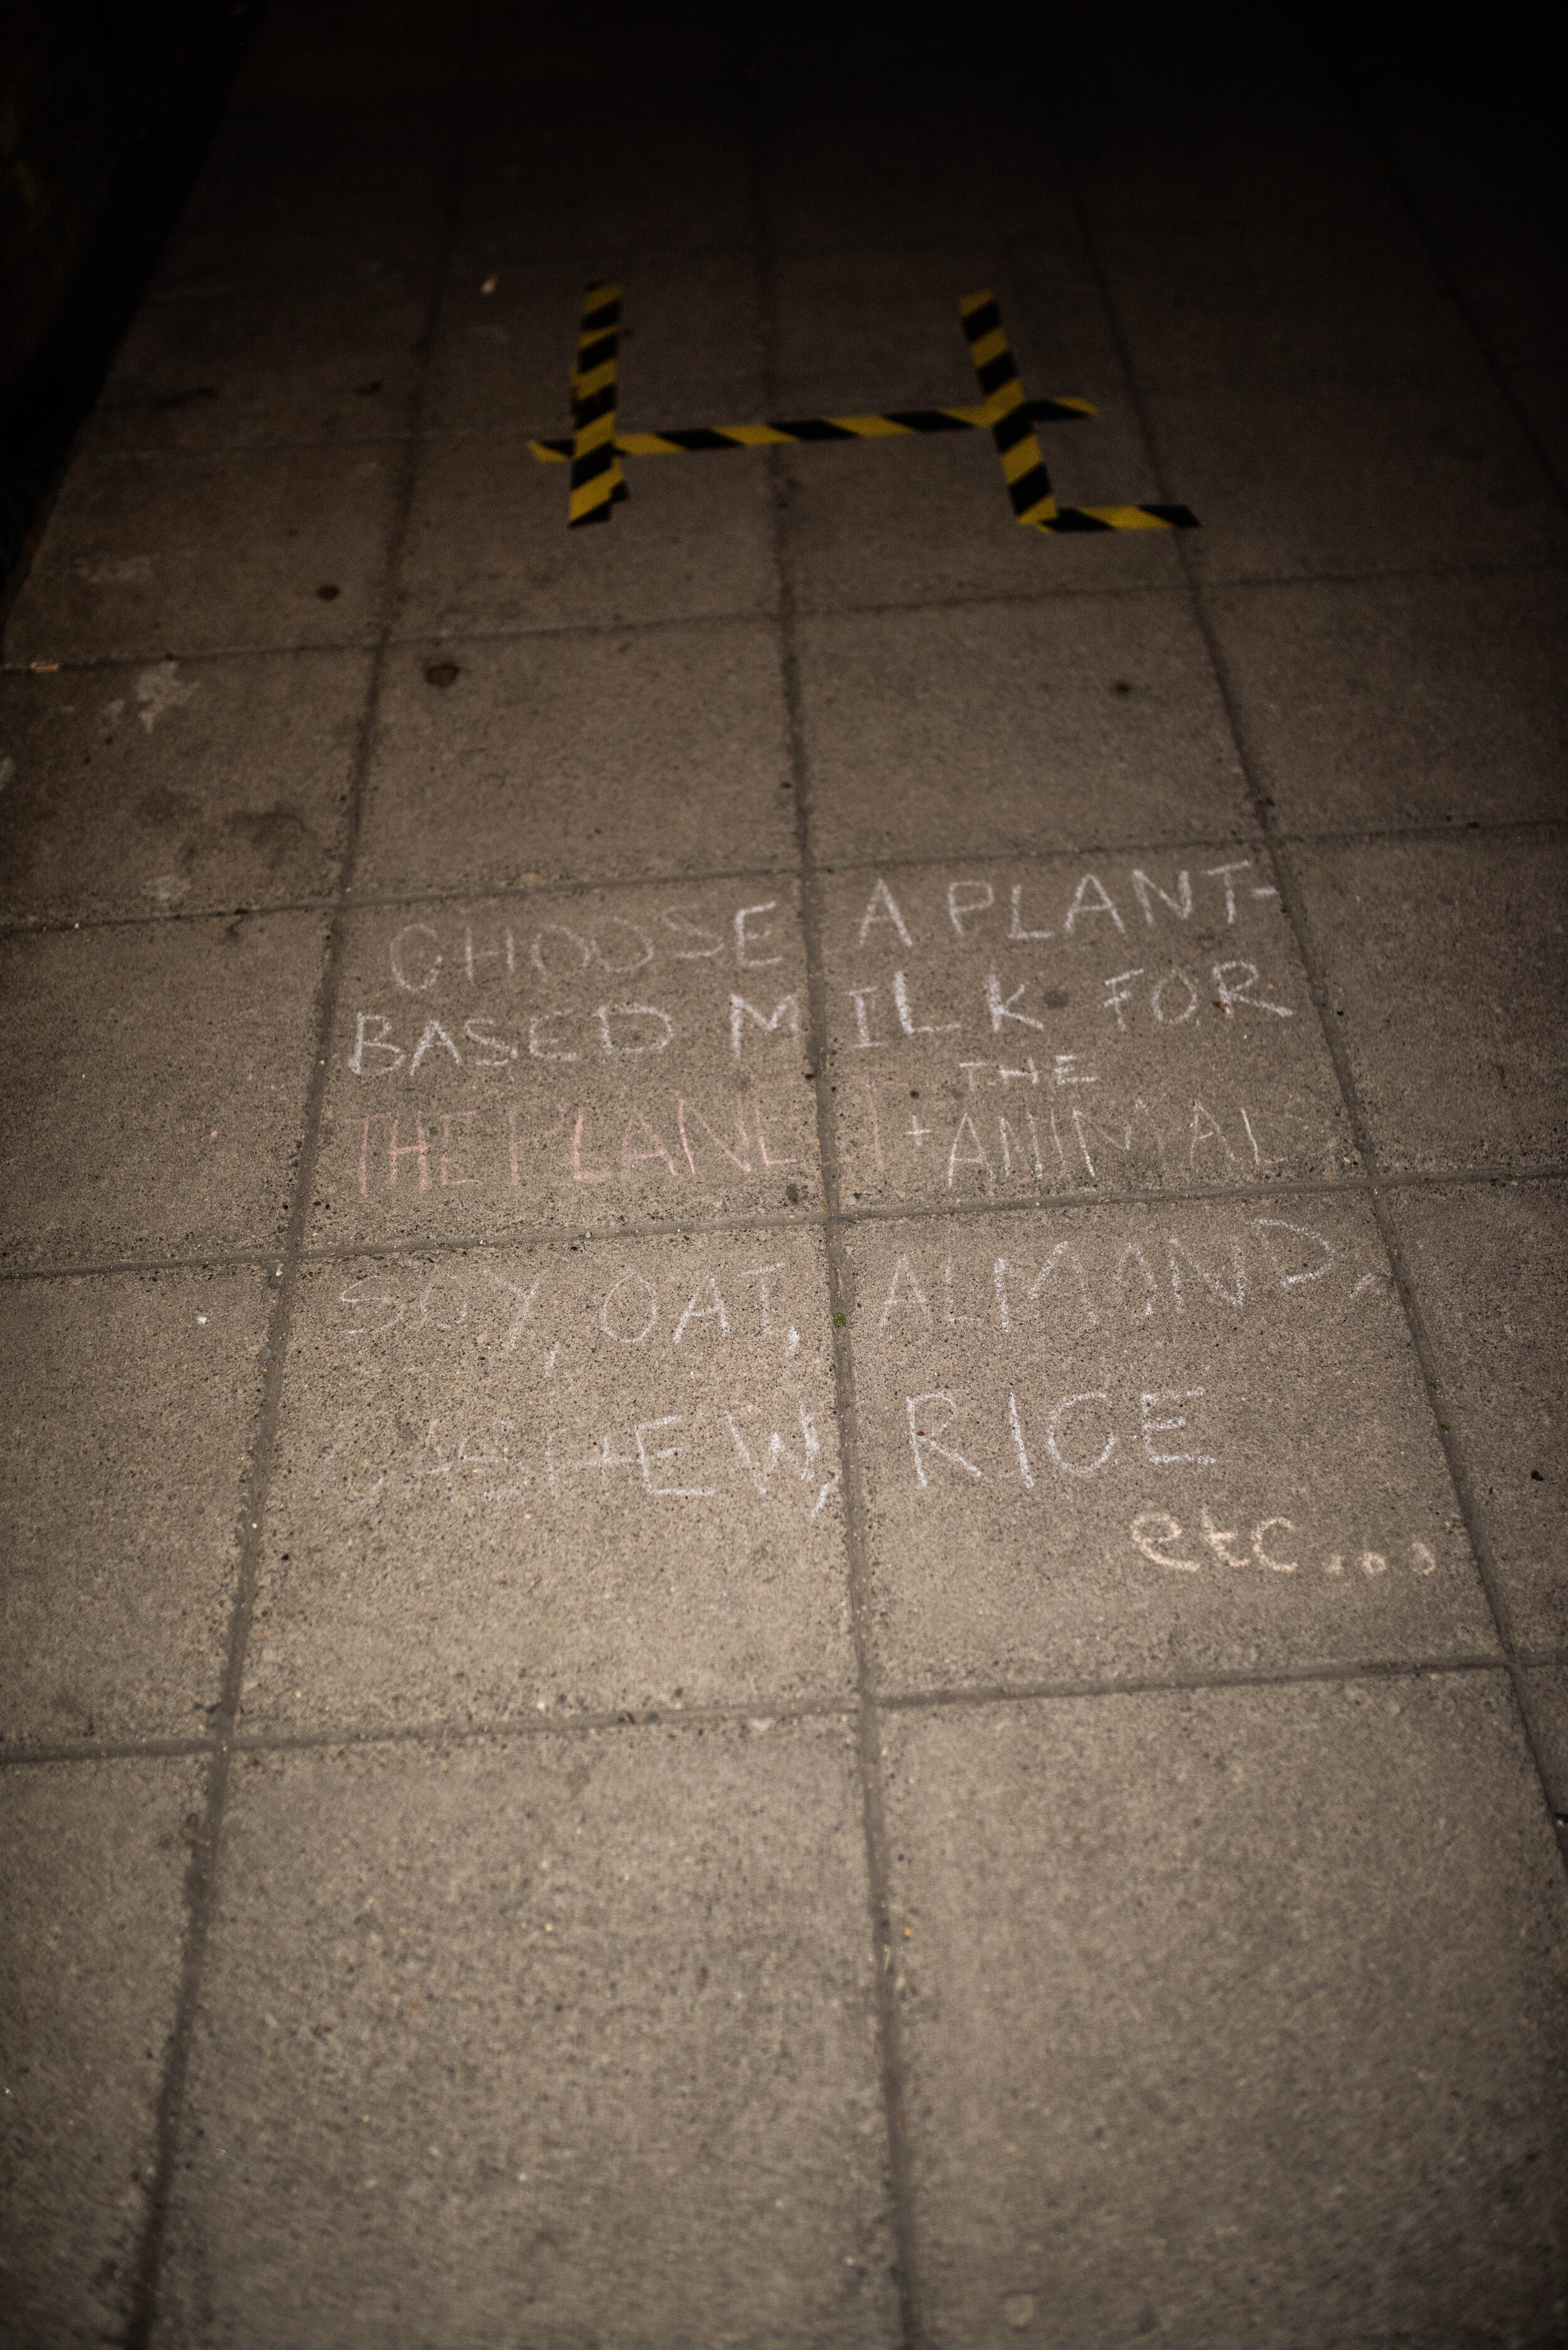 CHOOSE A PLANT-
BASED MILK FOR
THE
THE PLANET + ANIMAL
SOY, OAT, ALMOND,
CASHEW, RICE
etc...